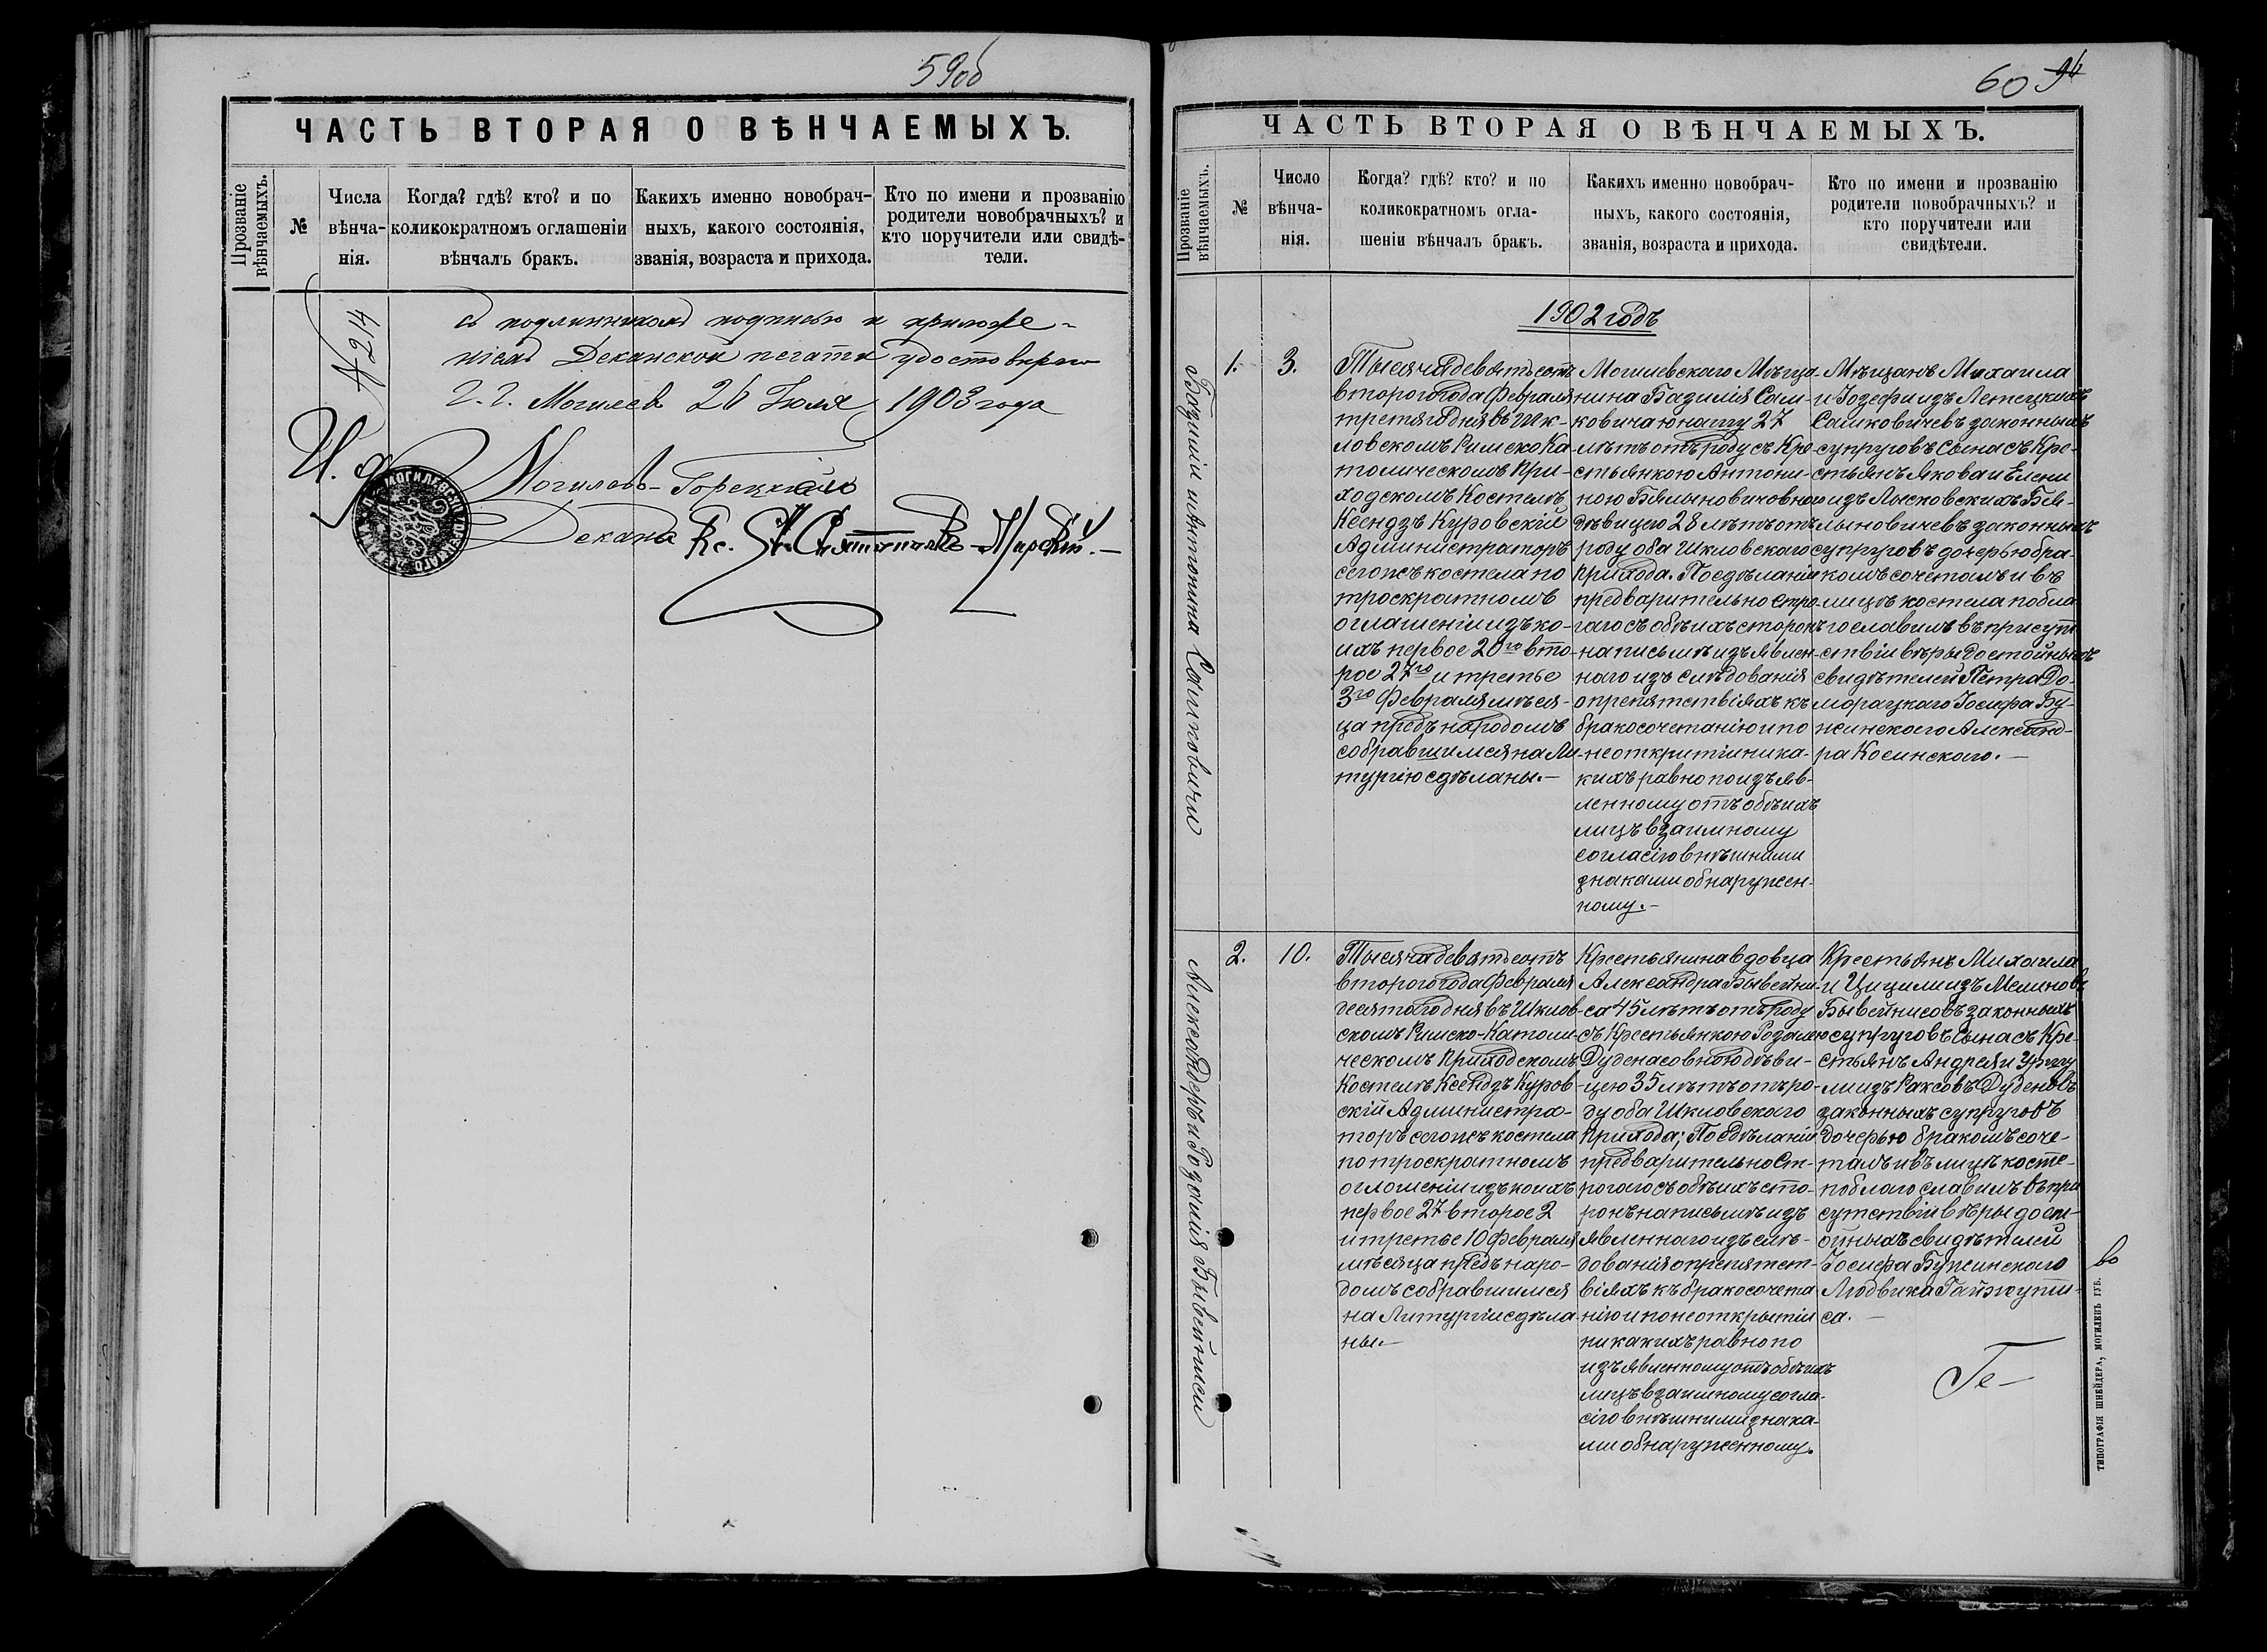 59об
ЧАСТЬ ВТОРАЯ О ВѢНЧАЕМЫХЪ.
Прозваніе вѣнчаемыхъ.
№
Числа
вѣнча-
нія.
Когда? гдѣ? кто? и по
коликократномъ оглашеніи
вѣнчалъ бракъ.
Какихъ именно новобрач-
ныхъ, какого состоянія,
званія, возраста и прихода.
Кто по имени и прозванію
родители новобрачныхъ? и
кто поручители или свидѣ-
тели.
№ 214
съ подлинникомъ подписью и приложе-
ніемъ Деканской печати удостовѣряю
Г. Г. Могилевъ 26 Іюля 1903 года
И. д.
Могилево-Горецкаго
Декана Кс.
60
ЧАСТЬ ВТОРАЯ О ВѢНЧАЕМЫХЪ.
Прозваніе вѣнчаемыхъ.
№
Число
вѣнча-
нія.
Когда? гдѣ? кто? и по
коликократномъ огла-
шеніи вѣнчалъ бракъ.
Какихъ именно новобрач-
ныхъ, какого состоянія,
званія, возраста и прихода.
Кто по имени и прозванію
родители новобрачныхъ? и
кто поручители или
свидѣтели.
1902 годъ
Базилій и Антонина Самковичи
1.
3.
Тысяча девятьсотъ
второго года Февраля
третяго дня въ Шк-
ловскомъ Римско Ка
толическомъ При-
ходскомъ Костелѣ
Ксендзъ Куровскій
Администраторъ
сегожъ костела по
троскратномъ
оглашеніи изъ ко-
ихъ первое 20го вто-
рое 27го и третье
3го Февраля мѣся-
ца предъ народомъ
собравшимся на Ли-
тургію сдѣланы.-
Могилевскаго Мѣща-
нина Базилія Сам-
ковича юношу 27
лѣтъ отъ роду съ Кре-
стьянкою Антони-
ною Бялыновичовною
дѣвицею 28 лѣтъ отъ
роду оба Шкловскаго
прихода. По сдѣланіи
предварительно стро-
гаго съ обѣихъ сторонъ
на письмѣ изъявлен-
наго изслѣдованія
о препятствіяхъ къ
бракосочетанію и по
неоткрытіи ника-
кихъ равно по изъяв-
ленному отъ обѣихъ
лицъ взаимному
согласію внѣшними
знаками обнаружен-
ному.-
Мѣщанъ Михаила
и Іозефы изъ Летецкихъ
Самковичевъ законныхъ
супруговъ сына съ Кре-
стьянъ Якова и Елены
изъ Лысковскихъ Бя-
лыновичевъ законныхъ
супруговъ дочерью бра-
комъ сочеталъ и въ
лицѣ костела побла-
гославилъ въ присут-
ствіи вѣры достойныхъ
свидѣтелей Петра До-
морацкаго Іосифа Бу-
жинскаго Александ-
ра Косинскаго.-
Александеръ и Розалія Бывейниси
2.
10.
Тысяча девятьсотъ
второго года Февраля
десятаго дня въ Шклов-
скомъ Римско-Католи-
ческомъ Приходскомъ
Костелѣ Ксендзъ Куров-
скій Администра-
торъ сегожъ костела
по троскратномъ
оглошеніи изъ коихъ
первое 27 второе 2
и третье 10 Февраля
мѣсяца предъ наро-
домъ собравшимся
на Литургіи сдѣла
ны.-
Крестьянина вдовца
Александра Бывейни-
са 45 лѣтъ отъ роду
съ Крестьянкою Розаліею
Дуденасовною дѣви-
цею 35 лѣтъ отъ ро-
ду оба Шкловскаго
прихода; По сдѣланіи
предварительно ст-
рогаго съ обѣихъ сто-
ронъ на письмѣ изъ
явленнаго изслѣ-
дованія о препятст-
віяхъ къ бракосочета
нію и по неоткрытіи
никакихъ равно по
изъявленному отъ обѣихъ
лицъ взаимному согла-
сію внѣшними знака-
ми обнаруженному.
Крестьянъ Михаила
и Цициліи изъ Мелиновъ
Бывейнисовъ законныхъ
супруговъ сына съ Кре-
стьянъ Андрея и Уршу
ли изъ Раксовъ Дуденовъ
законныхъ супруговъ
дочерью бракомъ соче-
талъ и въ лицѣ косте-
поблагославилъ въ при
сутствіи вѣры дост-
ойныхъ свидѣтелей
Іосифа Бужинскаго
Людвика Гайжути-
са.-
Ге-
во
ТИПОГРАФІЯ ШНЕЙДЕРА, МОГИЛЕВЪ ГУБ.